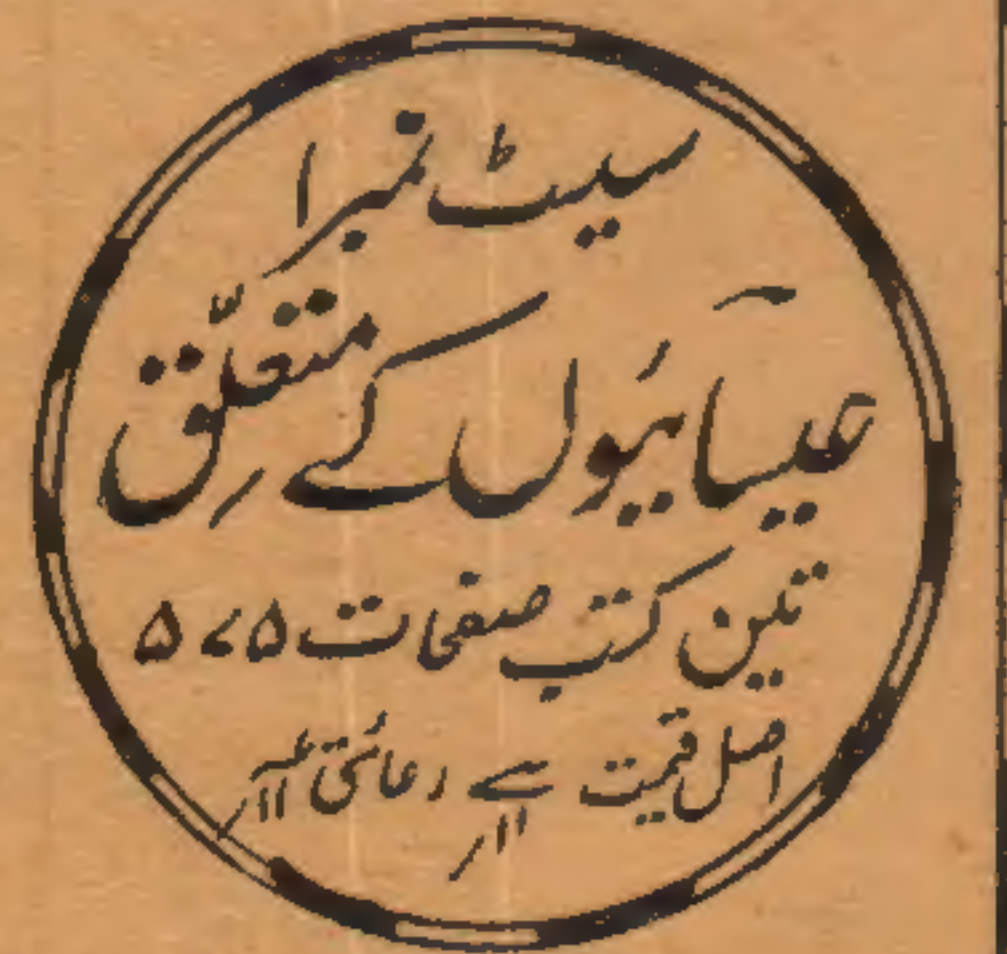 سیٹ نمبر ا
عیسائیوں کے متعلّق
تین کتب صفحات ۵۷۵
اصل قیمت رعائتی